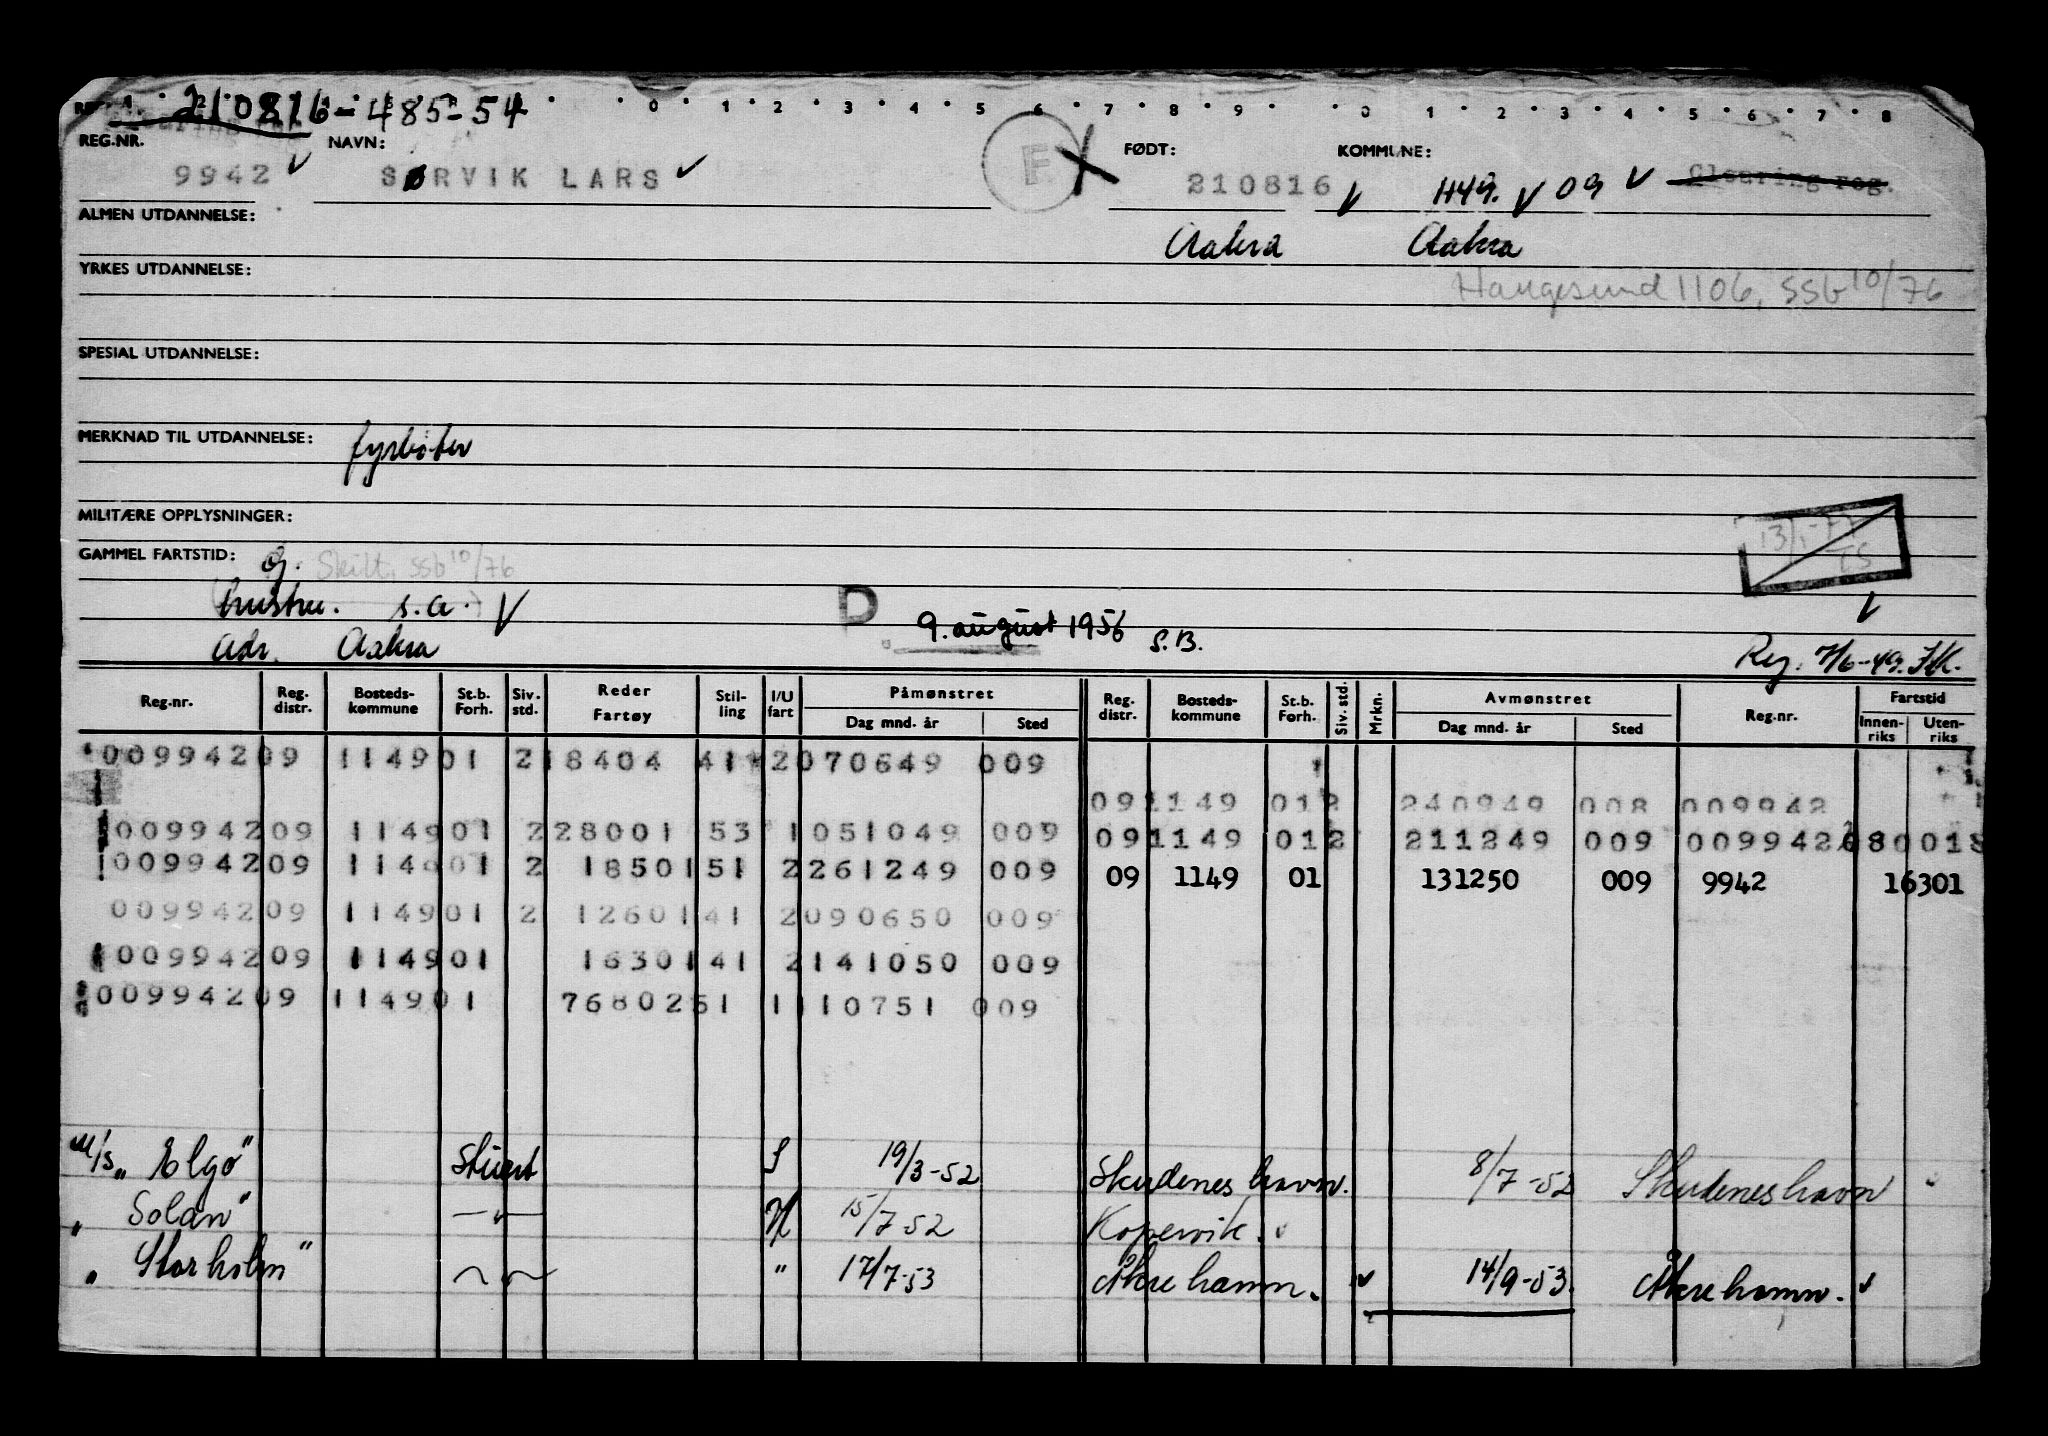 210816-485-54
0 1 2 3 4 5 6 7 8 9 0 1 2 3 4 5 6 7 8
REG.NR. NAVN: FØDT: KOMMUNE:
9942 SØRVIK LARS F 210816 1149. 09 Clearing reg.
ALMEN UTDANNELSE: Aakra Aakra
YRKES UTDANNELSE: Haugesund 1106, ssb 10/76
SPESIAL UTDANNELSE:
MERKNAD TIL UTDANNELSE: fyrbøter
MILITÆRE OPPLYSNINGER: 13/1-77
GAMMEL FARTSTID: G. Skilt, ssb 10/76
hustru. s.a. D 9. august 1956 S.B.
Adr. Aakra Reg. 7/6-49. J.K.
Reg.nr. Reg. distr. Bosteds-kommune St.b. Forh. Siv. std. Reder Fartøy Stil-ling I/U fart Påmønstret Dag mnd. år Sted Reg. distr. Bosteds-kommune St.b. Forh. Siv. std. Mrkn. Avmønstret Dag mnd. år Sted Reg.nr. Fartstid Innen-riks Uten-riks
009942 09 1149 01 2 18404 41 2 070649 009
09 1149 01 2 240949 008 009942
009942 09 1149 01 2 28001 53 1 051049 009 09 1149 01 2 211249 009 009942 680018
009942 09 1149 01 2 18501 51 2 261249 009 09 1149 01 131250 009 9942 16301
009942 09 1149 01 2 12601 41 2 090650 009
009942 09 1149 01 16301 41 2 141050 009
009942 09 1149 01 76802 51 1 110751 009
M/S „Elgo" Stuert S 19/3-52 Skudeneshavn. 8/7-52 Skudeneshavn
„Solan" N 15/7-52 Kopervik.
„Storholm" " 17/7-53 Åkrehamn. 14/9-53. Åkrehamn.